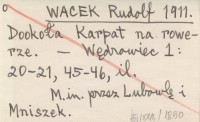 WACEK Rudolf 1911.
Dookoła Karpat na rowe-
rze. — Wędrowiec 1:
20-21, 45-46, il.
M.in. przez Lubowlę i
Mniszek.